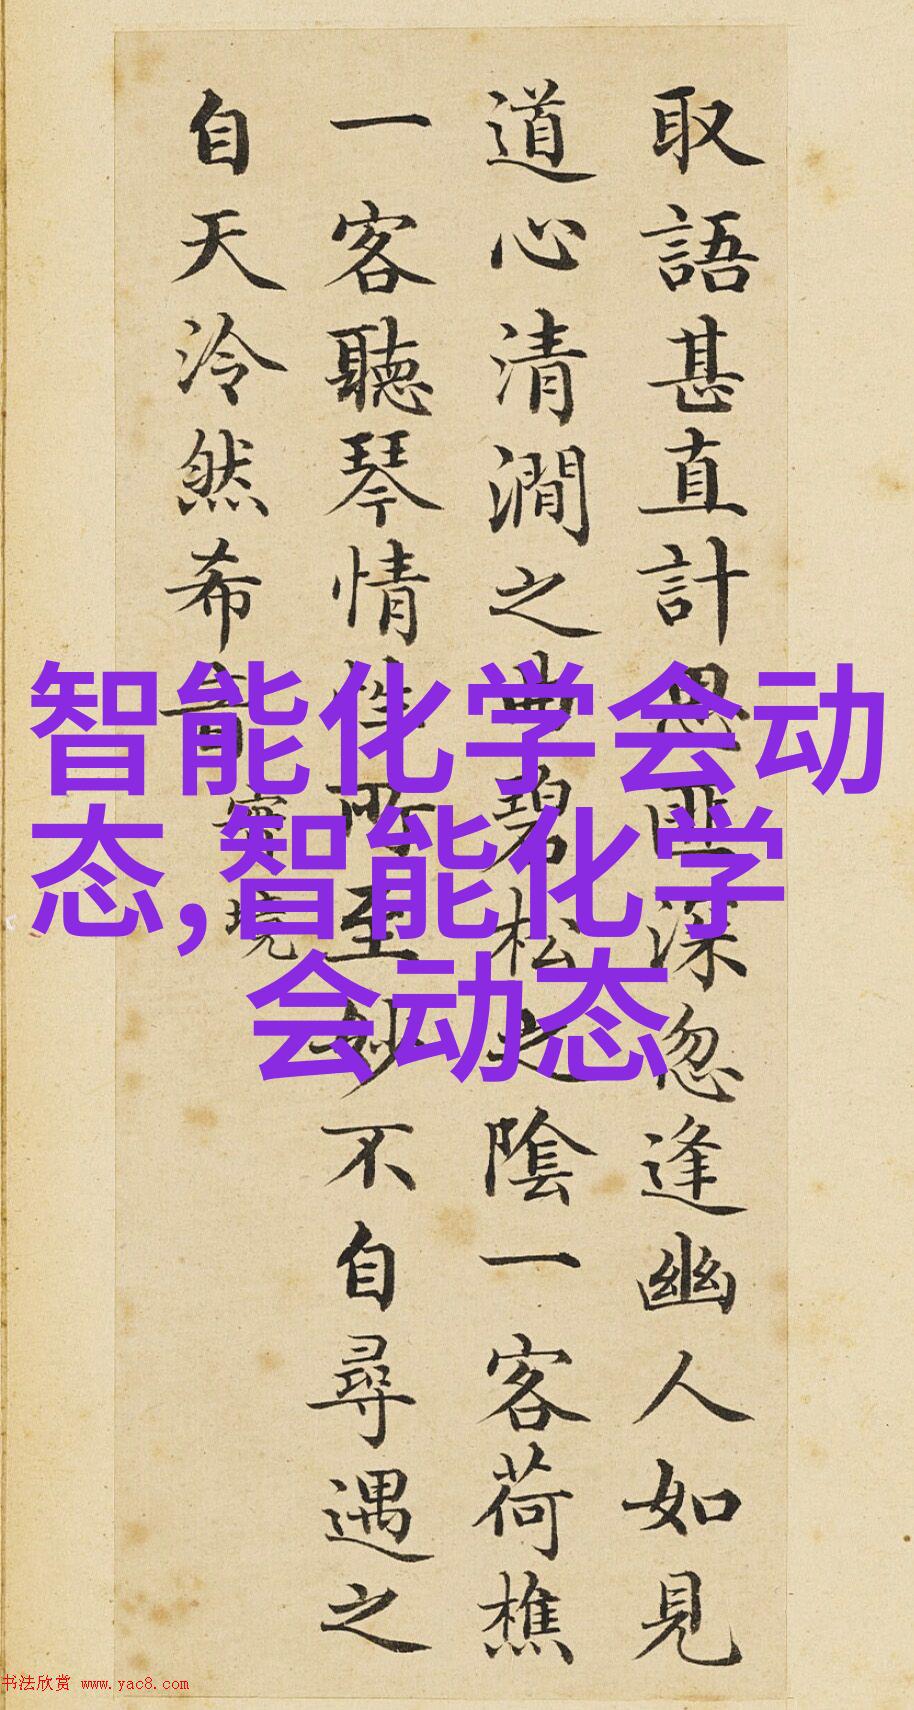 取語甚直計思匪深忽逢幽人如見
道心清澗之曲碧松之陰一客荷樵
一客聽琴情性所至妙不自尋遇之
自天泠然希音
實境
智能化学会动
态,智能化学
会动态
书法欣赏 www.yac8.com